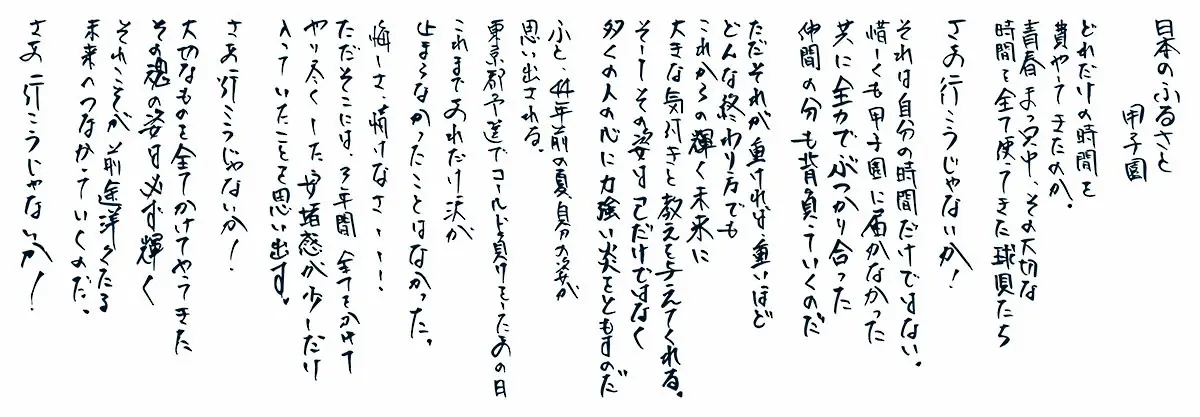 日本のふるさと
甲子園
どれだけの時間を
費やしてきたのか。
青春まっ只中、その大切な
時間を全て使ってきた球児たち
さあ行こうじゃないか！
それは自分の時間だけではない。
惜しくも甲子園に届かなかった
共に全力でぶつかり合った
仲間の分も背負っていくのだ
ただそれが重ければ重いほど
どんな終わり方でも
これからの輝く未来に
大きな気付きと教えを与えてくれる。
そしてその姿は己だけではなく
多くの人の心に力強い炎をともすのだ
ふと、44年前の夏自分の姿が
思い出される。
東京都予選でコールド負けをしたあの日
これまであれだけ涙が
止まらなかったことはなかった。
悔しさ、情けなさ・・・！
ただそこには、3年間全てをかけて
やり尽くした安堵感が少しだけ
入っていたことを思い出す。
さあ行こうじゃないか！
大切なものを全てかけてやってきた
その魂の姿は必ず輝く
それこそが前途洋々たる
未来へつながっていくのだ。
さあ行こうじゃないか！